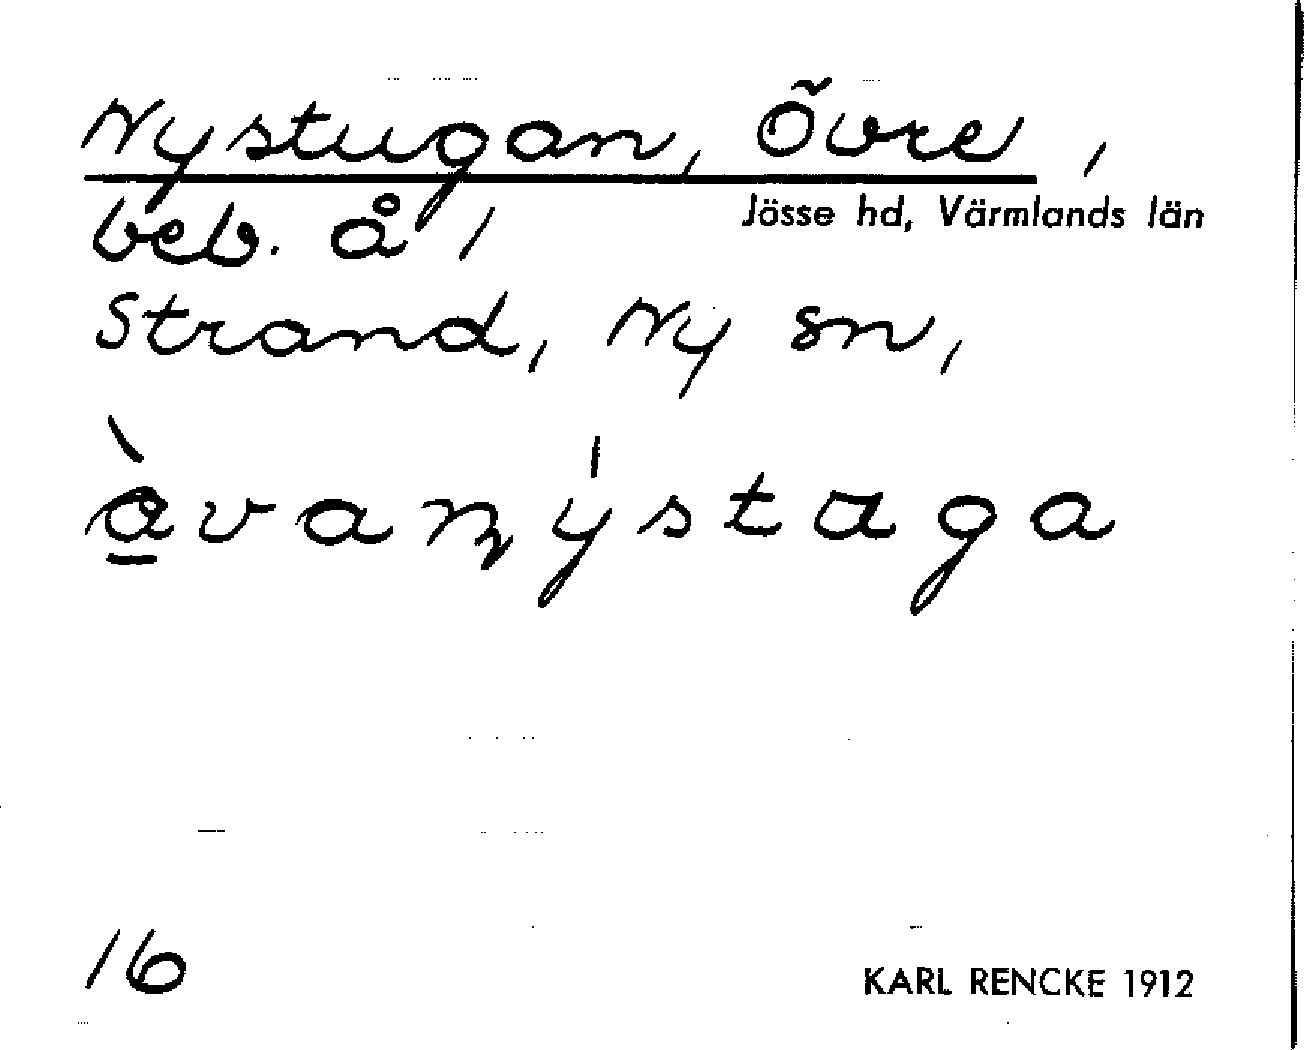 Nystugan, Övre,
Jösse hd, Värmlands län
beb. å
Strand, Ny sn,
àvanýstaga
16
KARL RENCKE 1912